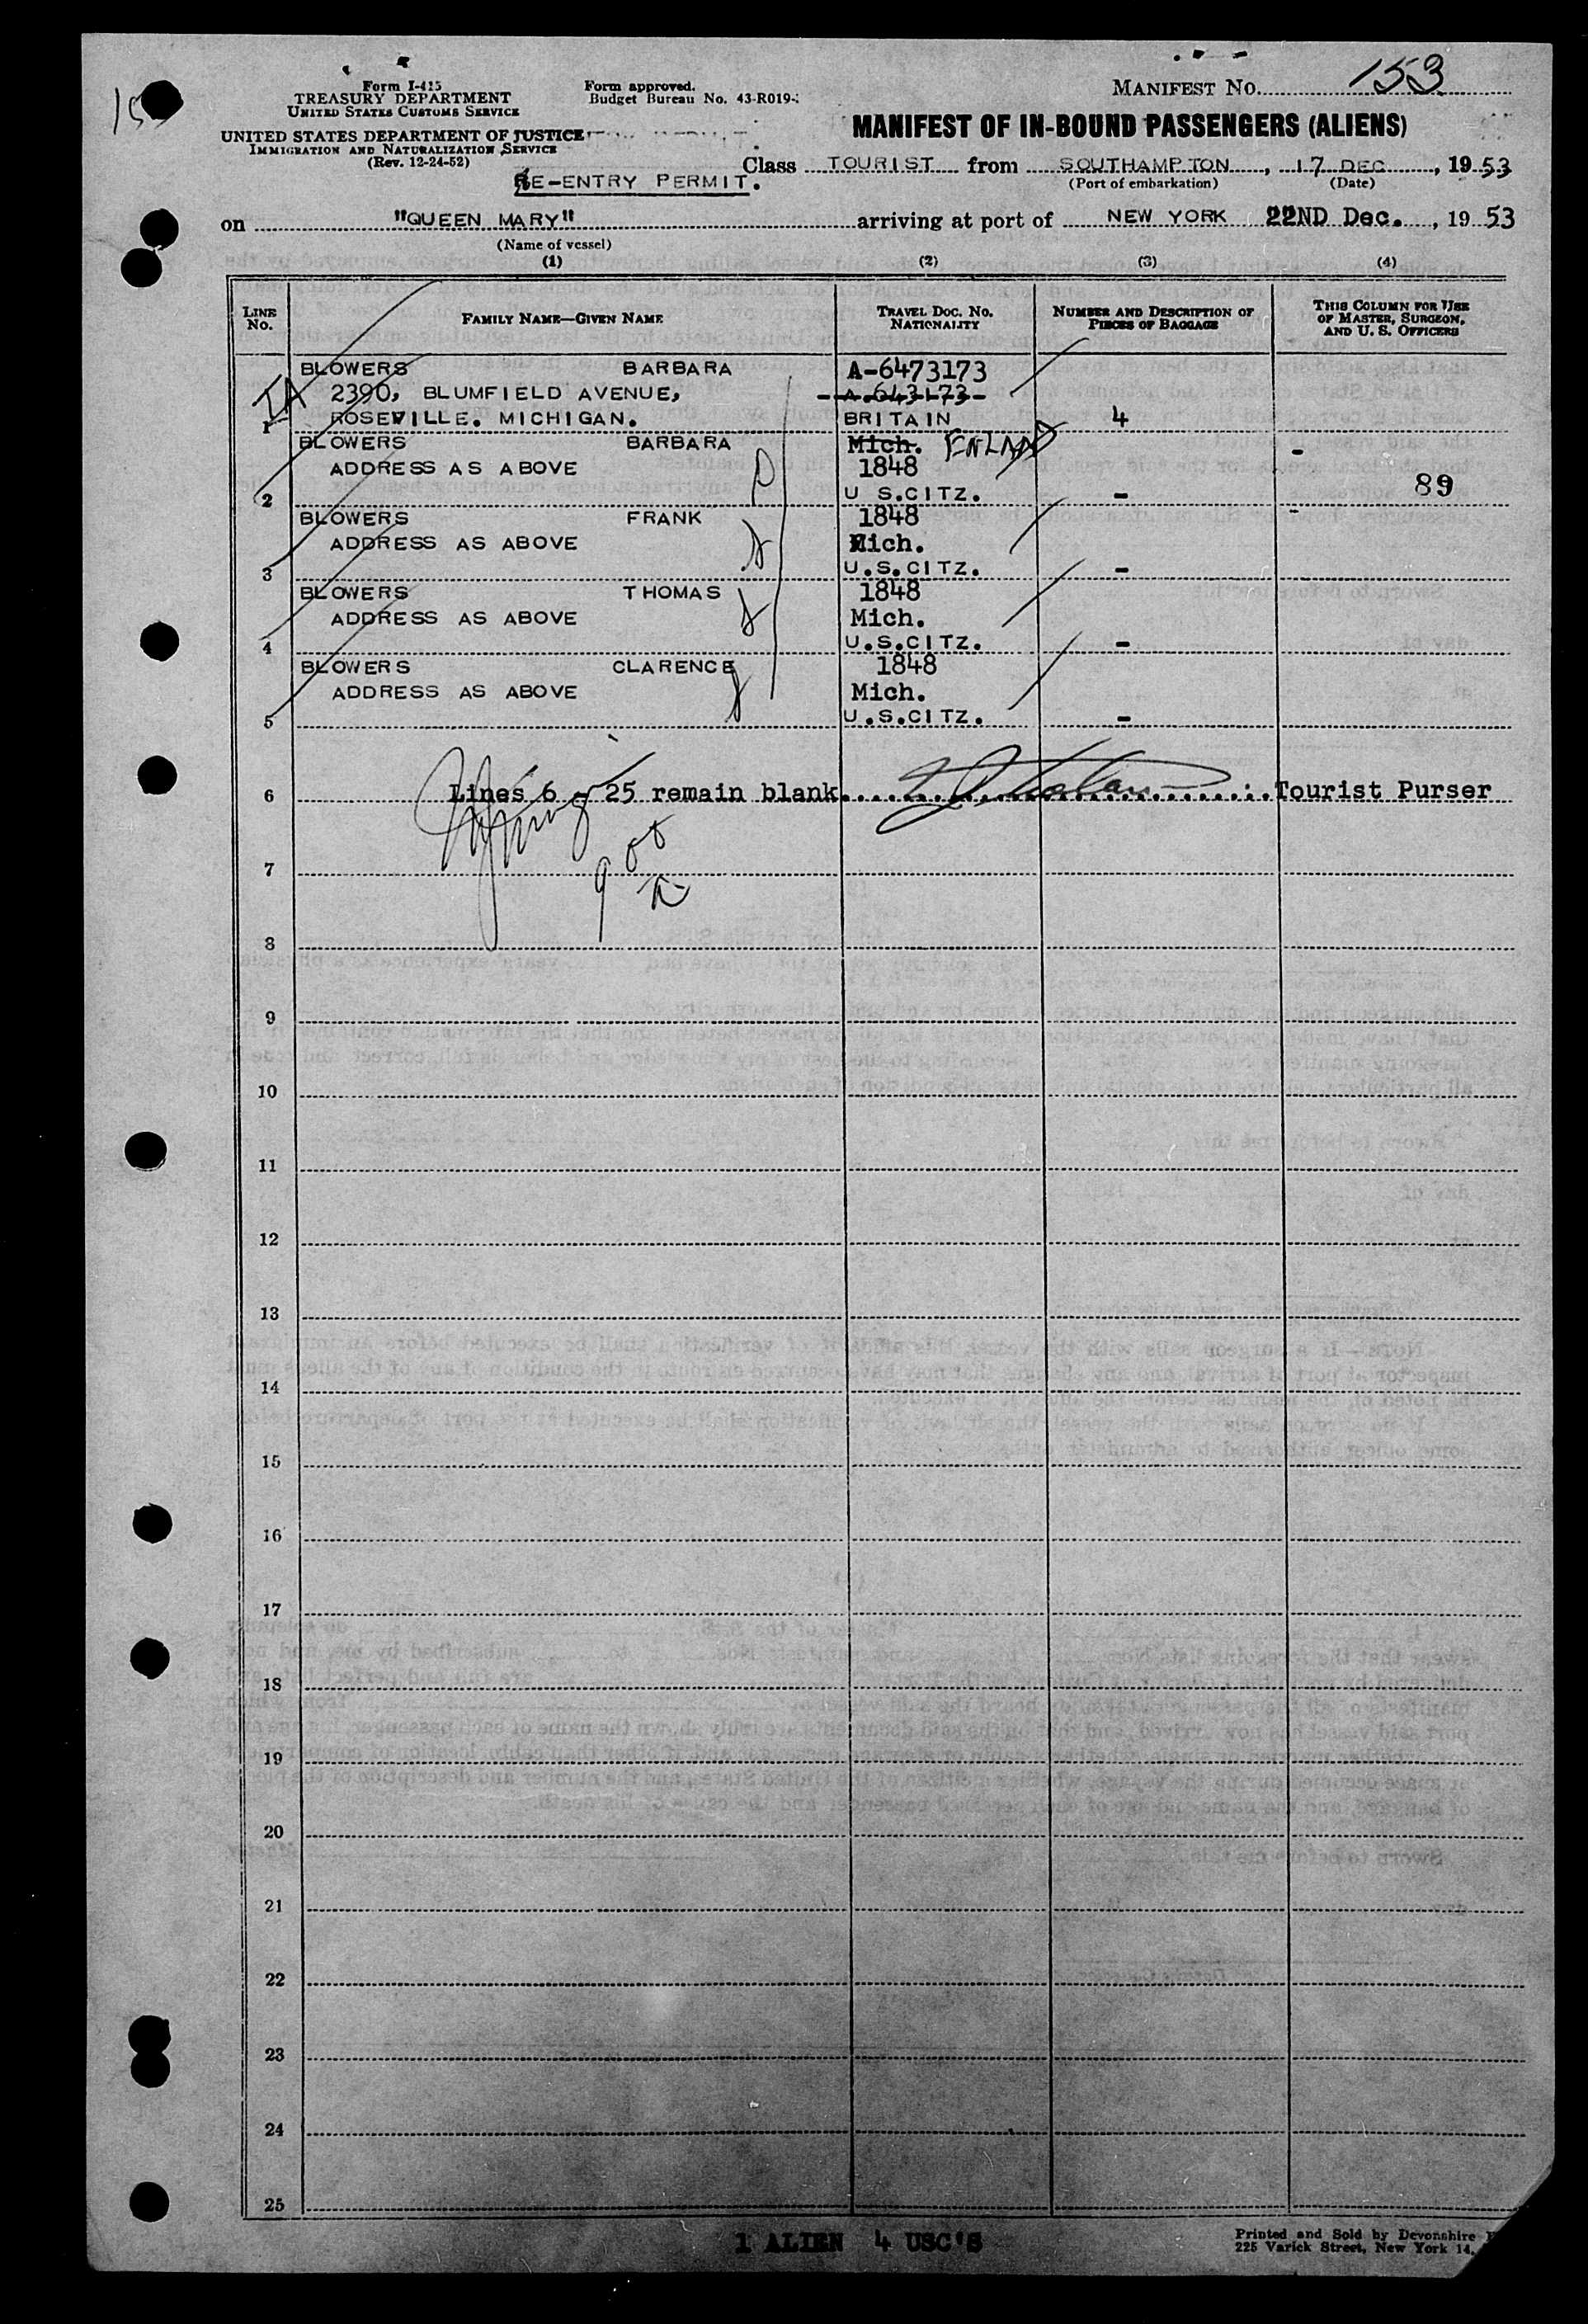 153
Form I-415
TREASURY DEPARTMENT
UNITED STATES CUSTOMS SERVICE
UNITED STATES DEPARTMENT OF JUSTICE
IMMIGRATION AND NATURALIZATION SERVICE
(Rev. 12-24-52)
Form approved.
Budget Bureau No. 43-R019-
MANIFEST No. 153
MANIFEST OF IN-BOUND PASSENGERS (ALIENS)
Class TOURIST from SOUTHAMPTON, 17 DEC, 1953
(Port of embarkation) (Date)
RE-ENTRY PERMIT.
on "QUEEN MARY" arriving at port of NEW YORK 22ND Dec., 1953
(Name of vessel)
(1) (2) (3) (4)
LINE No. FAMILY NAME—GIVEN NAME TRAVEL DOC. No. NATIONALITY NUMBER AND DESCRIPTION OF PIECES OF BAGGAGE THIS COLUMN FOR USE OF MASTER, SURGEON, AND U. S. OFFICERS
BLOWERS BARBARA A-6473173
2390, BLUMFIELD AVENUE, A.643173
1 ROSEVILLE. MICHIGAN. BRITAIN 4
BLOWERS BARBARA Mich.
ADDRESS AS ABOVE 1848 -
2 U S.CITZ. - 89
BLOWERS FRANK 1848 -
ADDRESS AS ABOVE Mich.
3 U.S.CITZ. -
BLOWERS THOMAS 1848
ADDRESS AS ABOVE Mich.
4 U.S.CITZ. -
BLOWERS CLARENCE 1848
ADDRESS AS ABOVE Mich.
5 U.S.CITZ. -
6 Lines 6 - 25 remain blank Tourist Purser
7
8
9
10
11
12
13
14
15
16
17
18
19
20
21
22
23
24
25
1 ALIEN 4 USC'S
Printed and Sold by Devonshire
225 Varick Street, New York 14.